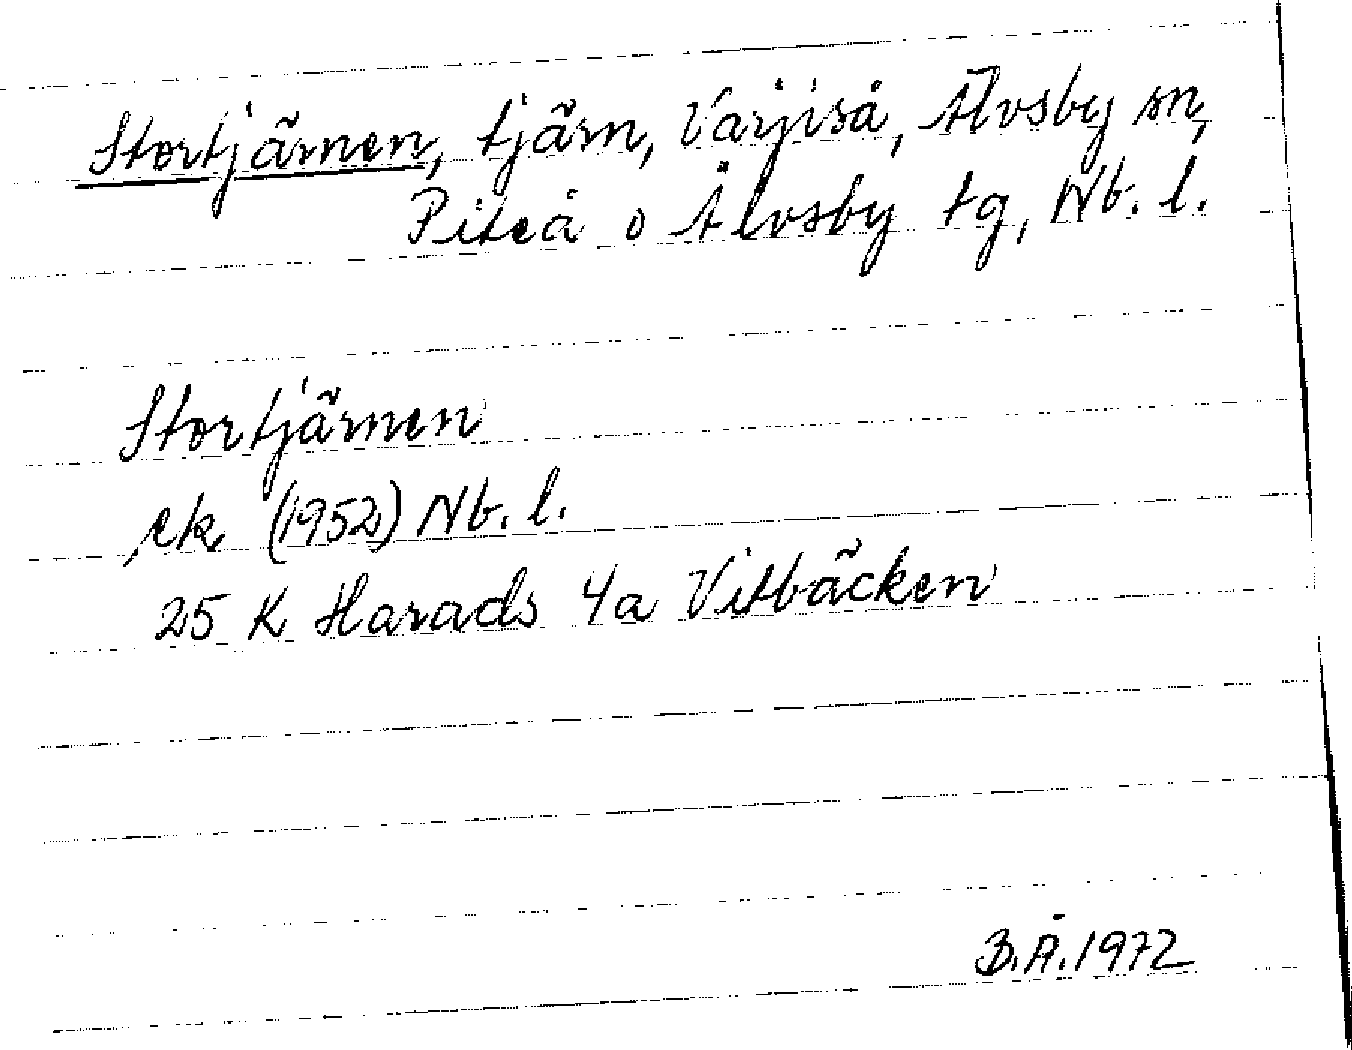 Stortjärnen, tjärn, Varjiså, Älvsby sn,
Piteå o Älvsby tg, Nb. l.
Stortjärnen
ek. (1952) Nb. l.
25 K Harads 4a Vitbäcken
B.Å.1972